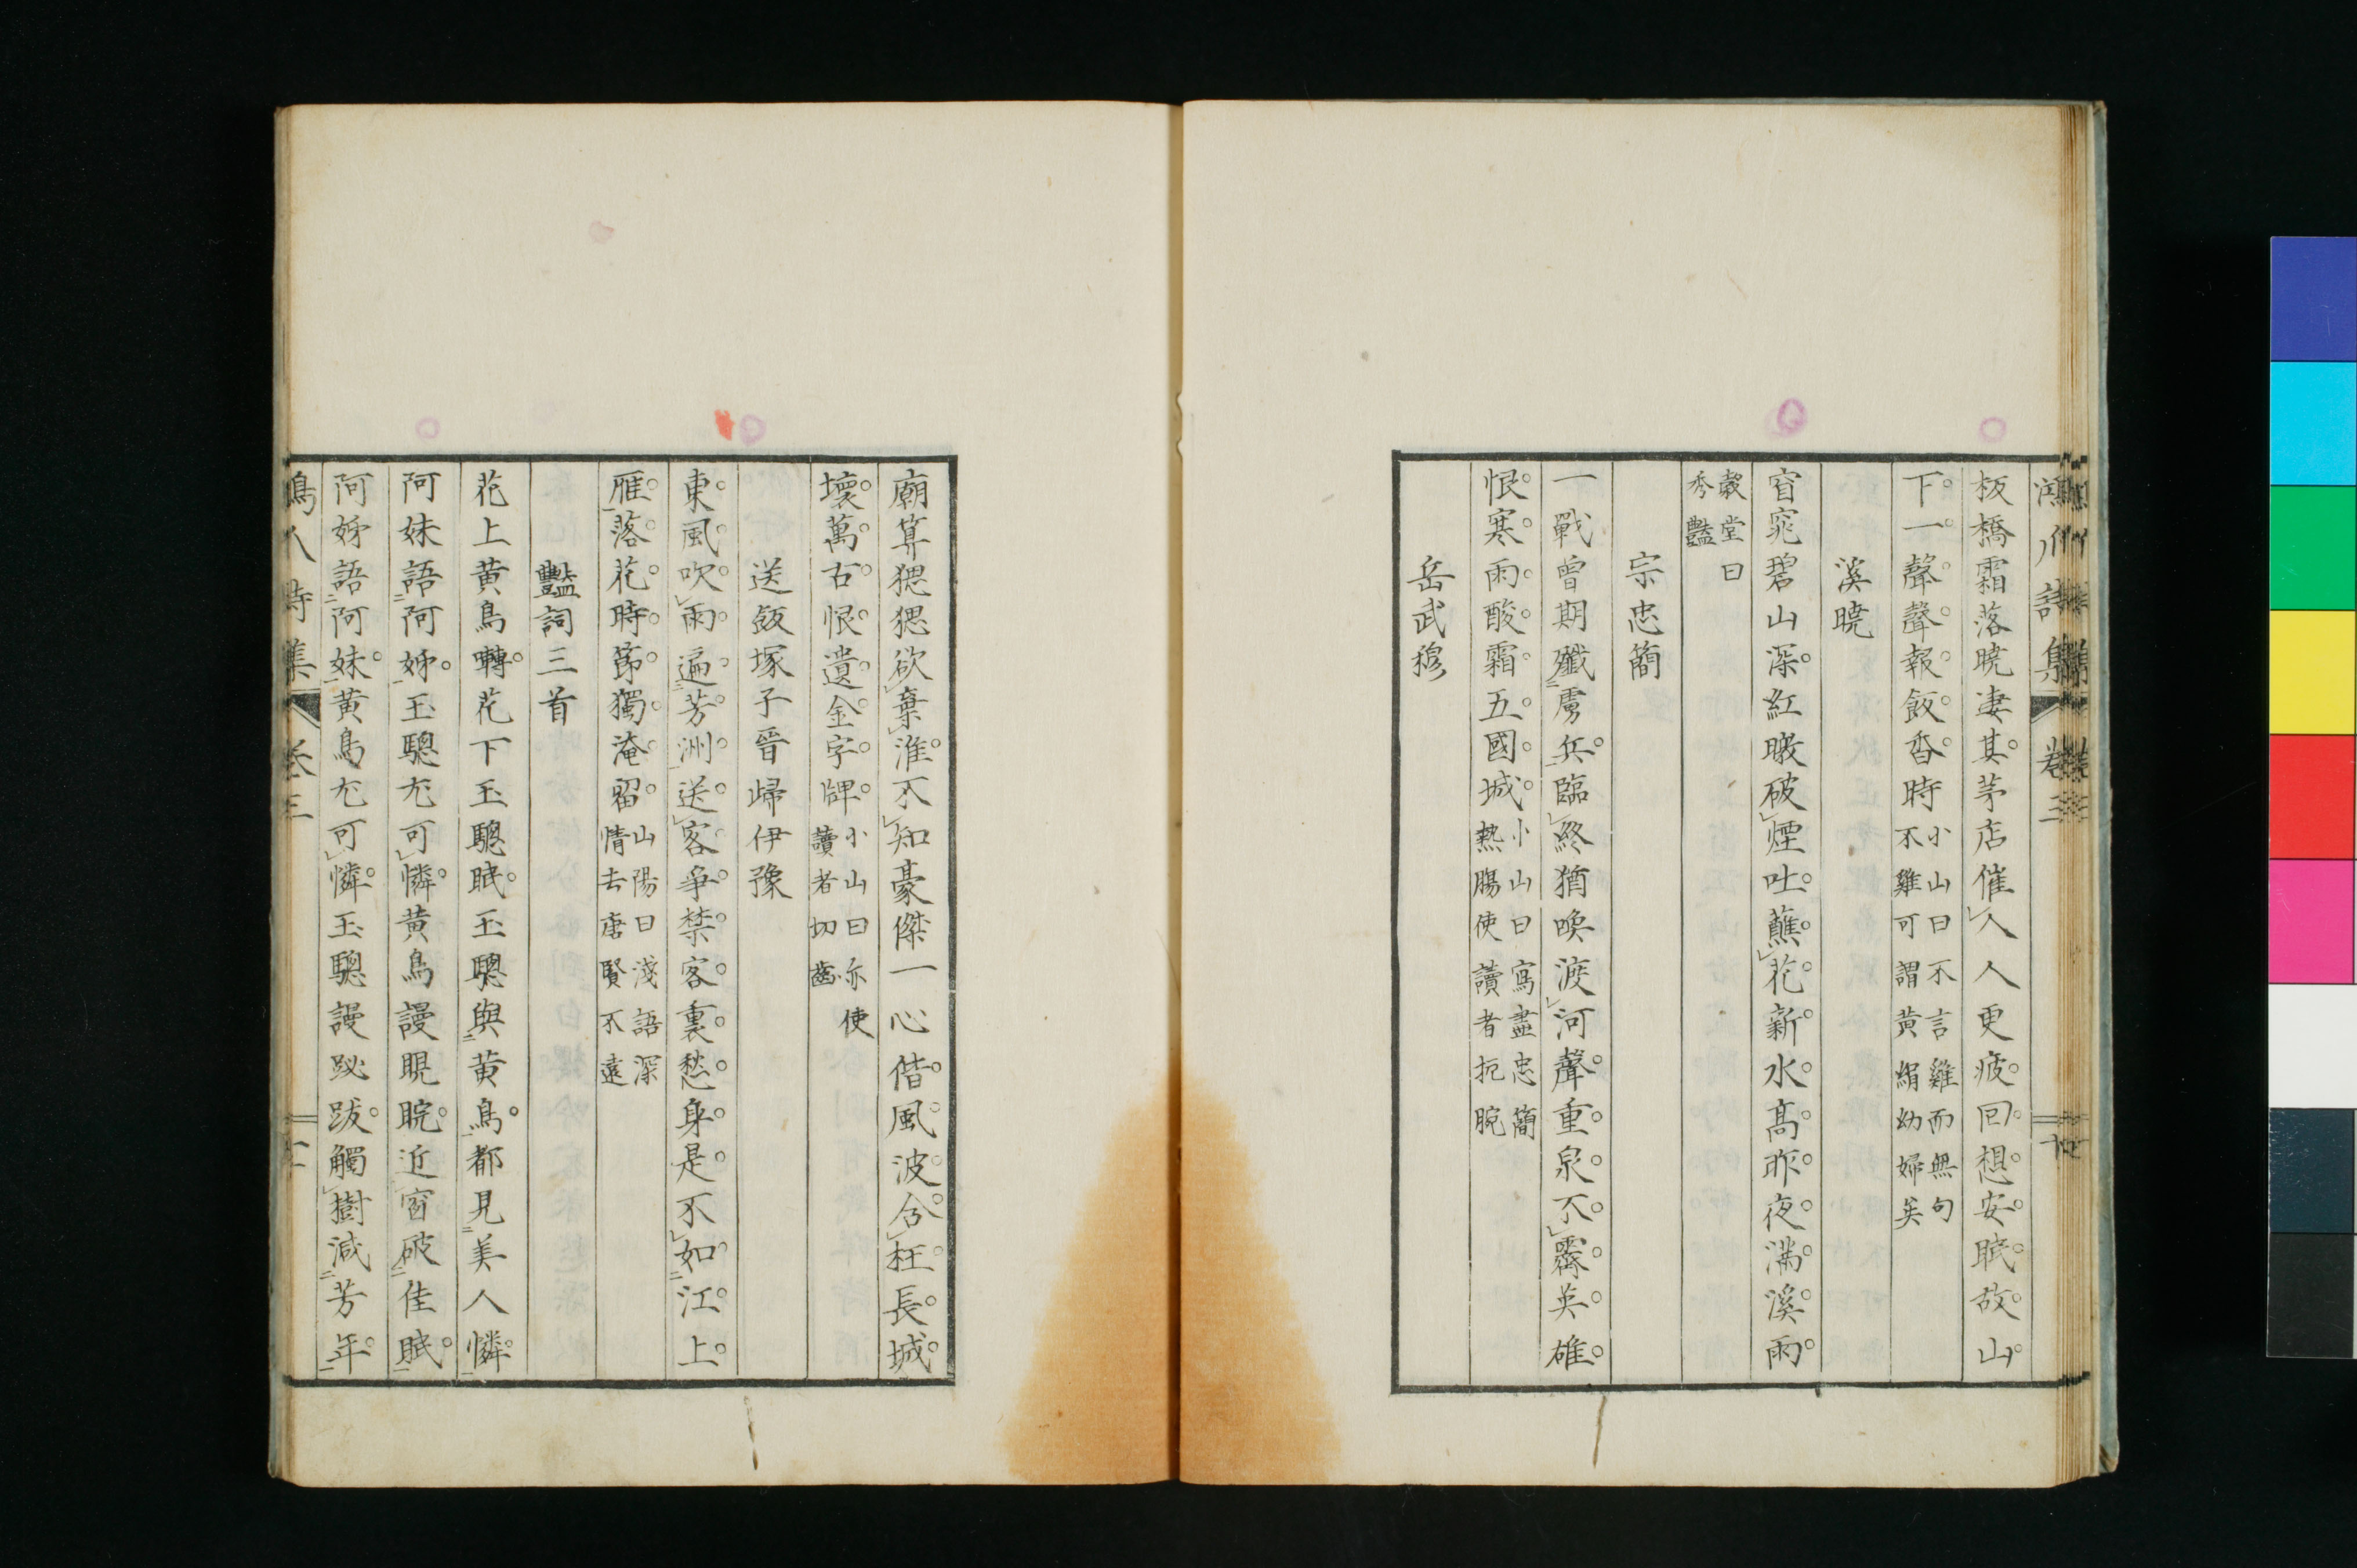 板橋霜落曉凄其茅店催人人更疲回想安眠故山
下一聲聲報飯香時
小山曰不言雞而無句
不雞可謂黃絹幼婦矣
溪曉
窅窕碧山深紅暾破煙吐蘸花新水高昨夜滿溪雨
穀堂曰
秀豔
宗忠簡
一戰曾期殲虜兵臨終猶喚渡河聲重泉不霽英雄
恨寒雨酸霜五國城
小山曰寫盡忠簡
熱腸使讀者扼腕
岳武穆
廟算猥猥欲棄淮不知豪傑一心偕風波兮枉長城
壞萬古恨遺金字牌
小山曰亦使
讀者切齒
送飯塚子晉歸伊豫
東風吹雨遍芳洲送客爭禁客裏愁身是不如江上
雁落花時節獨淹留
山陽曰淺語深
情去唐賢不遠
豔詞三首
花上黃鳥囀花下玉驄眠玉驄與黃鳥都見美人憐
阿妹語阿姊玉驄尤可憐黃鳥謾睍睆近窗破佳眠
阿姊語阿妹黃鳥尤可憐玉驄謾跋跋觸樹減芳年